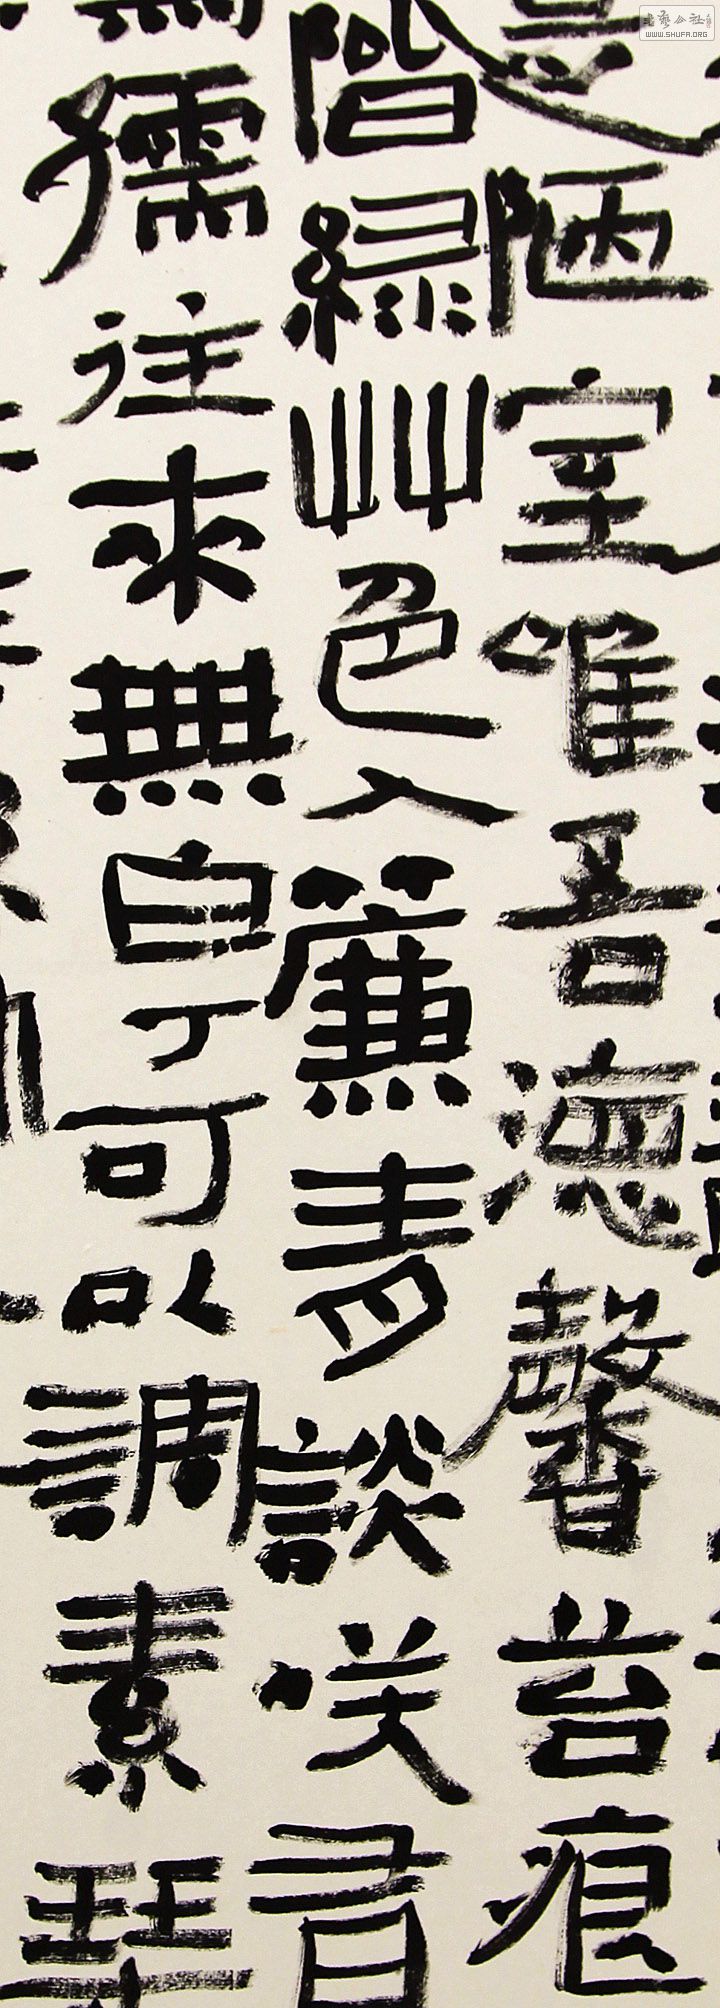 陋室唯吾德馨苔痕
階綠艸色入簾青談咲有
儒往來無白丁可以調素琴
書藝公社
WWW.SHUFA.ORG